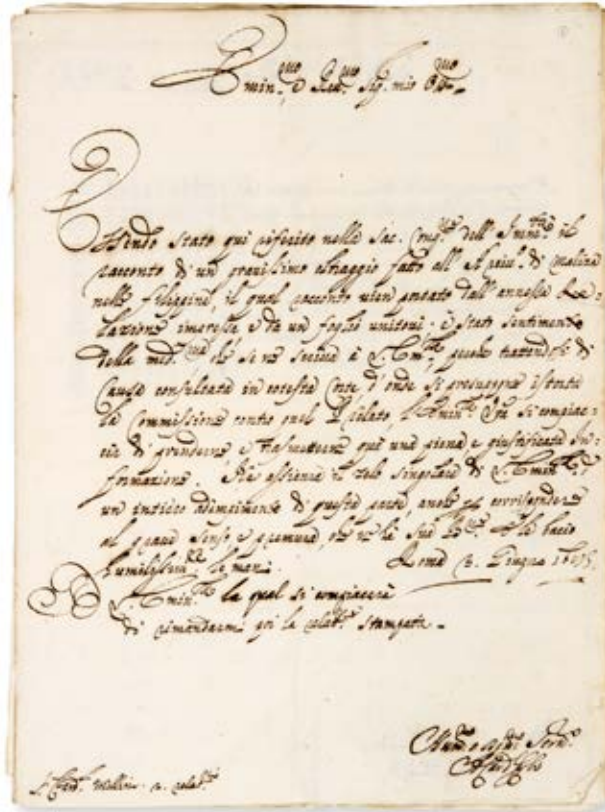 Emin.mo e Rev.mo Sig. mio Oss.mo
Essendo stato qui riferito nella Sac. Cong.ne dell' Imm.tà il
racconto di un gravissimo oltraggio fatto all' Arciv.o di Manila
nelle Filippine, il qual racconto vien portato dall' annessa Re-
lazione impressa e da un foglio unitovi; è stato sentimento
della med.ma che se ne scriva à V. Em.za, quale trattandosi di
Causa consultata in cotesta Corte, d'onde si presuppone
la Commissione contro quel Prelato, l' Emin.za V.ra si compiac-
cia di prendere e trasmettere quà una piena e giustificata In-
formazione. il zelo singolare di V. Emin.za
un intiero adempimento di questa parte, anche per corrispondere
al grave senso e premura, che ne hà Sua e le bacio
humilissim.te le mani. Roma Giugno
V. Emin.za la qual si compiacerà
di rimandarmi poi la relat.ne stampata.
S.r Card. Mellini